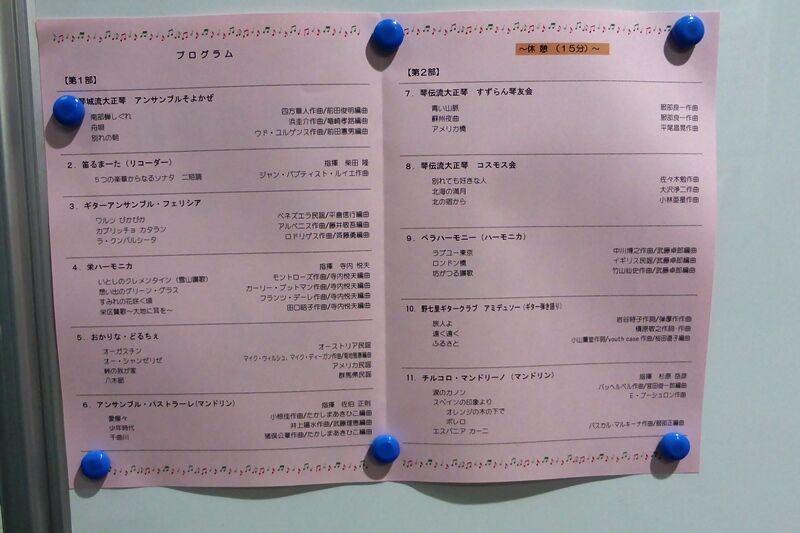 プログラム
【第1部】
琴城流大正琴 アンサンブルそよかぜ
南部蝉しぐれ 四方章人作曲/前田俊明編曲
舟唄 浜圭介作曲/竜崎孝路編曲
別れの朝 ウド・ユルゲンス作曲/前田憲男編曲
2. 笛るまーた（リコーダー） 指揮 柴田 隆
5つの楽章からなるソナタ 二短調 ジャン・バプティスト・ルイエ作曲
3. ギターアンサンブル・フェリシア
ワルツ ぴかぴか ベネズエラ民謡/平倉信行編曲
カプリッチョ カタラン アルベニス作曲/藤井敬吾編曲
ラ・クンパルシータ ロドリゲス作曲/斉藤勇編曲
4. 栄ハーモニカ 指揮 寺内 悦夫
いとしのクレメンタイン（雪山讃歌） モントローズ作曲/寺内悦夫編曲
想い出のグリーン・グラス カーリー・プットマン作曲/寺内悦夫編曲
すみれの花咲く頃 フランツ・デーレ作曲/寺内悦夫編曲
栄区賛歌～大地に耳を～ 田口昭子作曲/寺内悦夫編曲
5. おかりな・どるちぇ
オーガスチン オーストリア民謡
オー・シャンゼリゼ マイク・ウィルシュ、マイク・ディーガン作曲/菊地雅恵編曲
峠の我が家 アメリカ民謡
八木節 群馬県民謡
6. アンサンブル・パストラーレ(マンドリン) 指揮 佐伯 正則
愛燦々 小椋佳作曲/たかしまあきひこ編曲
少年時代 井上陽水作曲/武藤理恵編曲
千曲川 猪俣公章作曲/たかしまあきひこ編曲
～休 憩（15分）～
【第2部】
7. 琴伝流大正琴 すずらん琴友会
青い山脈 服部良一作曲
蘇州夜曲 服部良一作曲
アメリカ橋 平尾昌晃作曲
8. 琴伝流大正琴 コスモス会
別れても好きな人 佐々木勉作曲
北海の満月 大沢浄二作曲
北の宿から 小林亜星作曲
9. ベラハーモニー（ハーモニカ）
ラブユー東京 中川博之作曲/武藤卓郎編曲
ロンドン橋 イギリス民謡/武藤卓郎編曲
坊がつる讃歌 竹山仙史作曲/武藤卓郎編曲
10. 野七里ギタークラブ アミデュソー（ギター弾き語り）
旅人よ 岩谷時子作詞/弾厚作作曲
遠く遠く 槇原敬之作詞・作曲
ふるさと 小山薫堂作詞/youth case作曲/桜田直子編曲
11. チルコロ・マンドリーノ（マンドリン） 指揮 杉原 岳彦
涙のカノン パッヘルベル作曲/宮田俊一郎編曲
スペインの印象より E・ブーシュロン作曲
オレンジの木の下で
ボレロ
エスパニア カーニ パスカル・マルキーナ作曲/服部正編曲